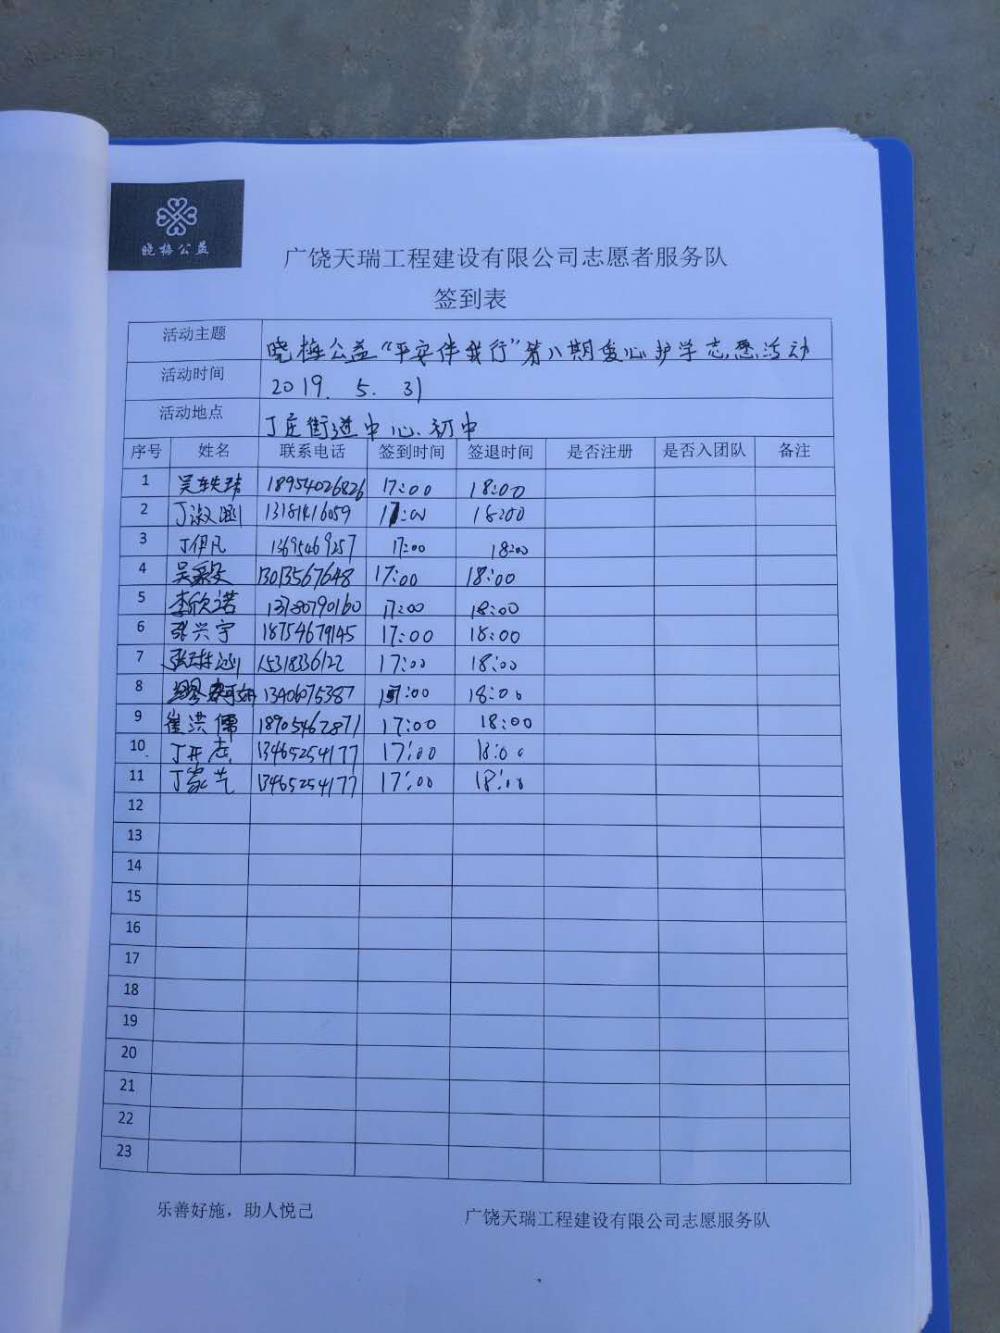 晓梅公益
广饶天瑞工程建设有限公司志愿者服务队
签到表
活动主题 晓梅公益“平安伴我行”第八期爱心护学志愿活动
活动时间 2019. 5. 31
活动地点 丁庄街道中心初中
序号 姓名 联系电话 签到时间 签退时间 是否注册 是否入团队 备注
1 18954026826 17:00 18:00
2 丁淑涵 17:00 18:00
3 丁伊凡 17:00 18:00
4 13013567648 17:00 18:00
5 李欣诺 13780790160 17:00 18:00
6 张兴宇 18754679145 17:00 18:00
7 17:00 18:00
8 13406075387 17:00 18:00
9 崔洪儒 18905462871 17:00 18:00
10 丁开志 13465254177 17:00 18:00
11 丁家艺 13465254177 17:00 18:00
12
13
14
15
16
17
18
19
20
21
22
23
乐善好施，助人悦己 广饶天瑞工程建设有限公司志愿服务队